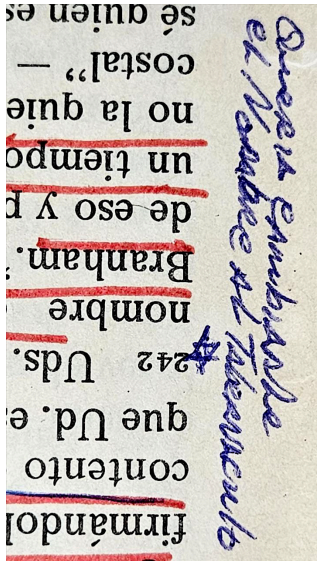 firmándol
contento
que Ud. e
242 Uds.
nombre
Branham.
de eso y p
un tiempo
no la quie
costal” —
sé quien es
Querria cambiarle
el Nombre al Tabernaculo